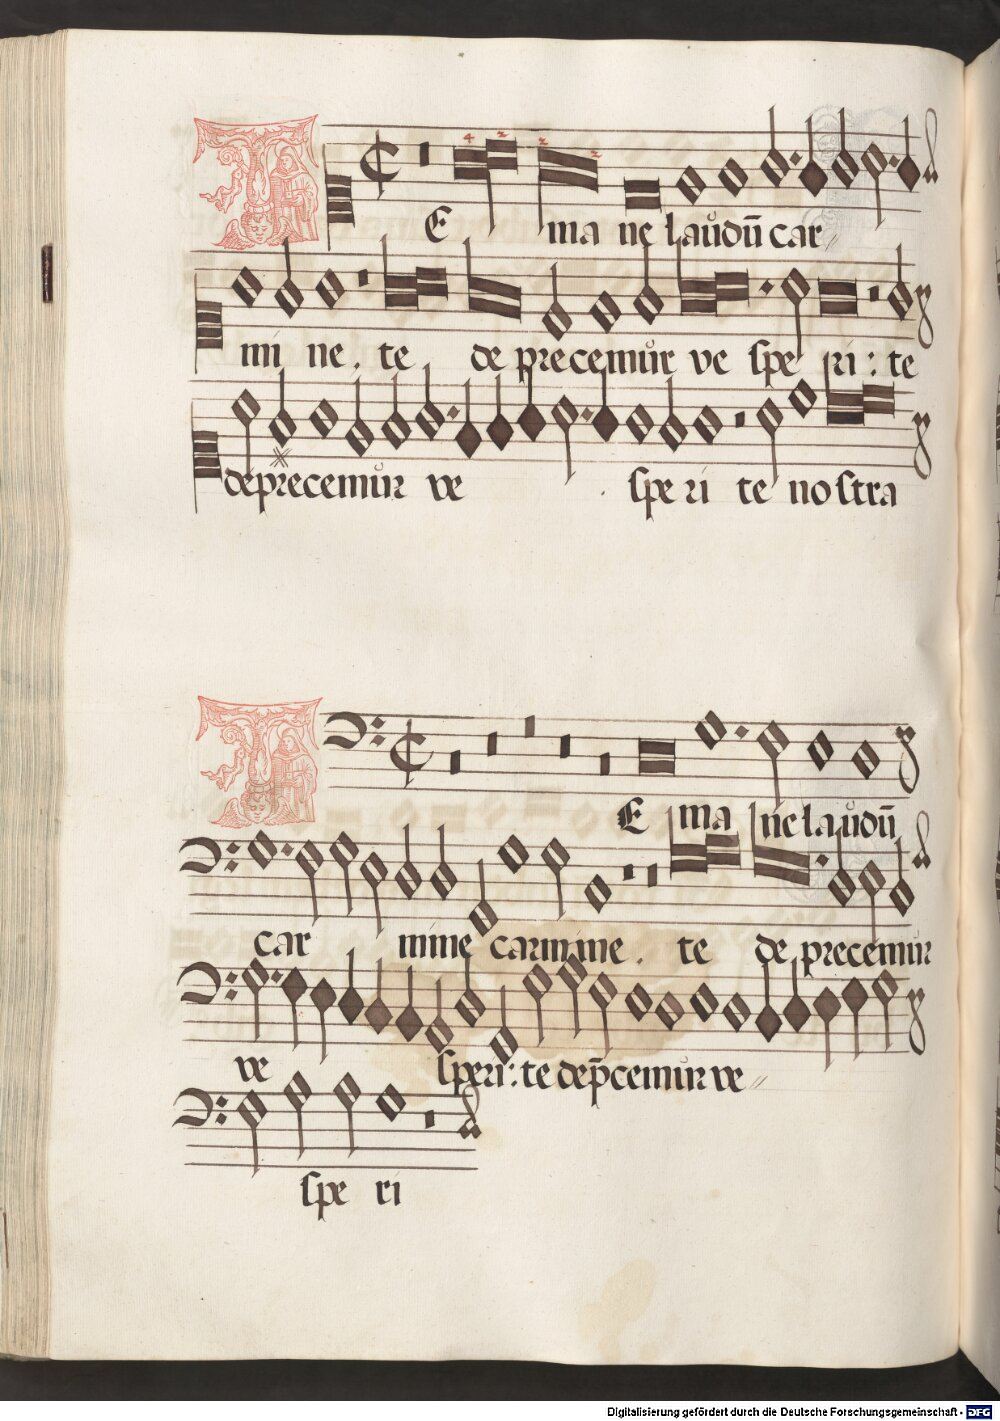 4 2 2 2
TE ma ne laudū car
mi ne . te de precemur ve spe ri : te
deprecemur ve . spe ri te nostra
TE ma ne laudū
car mine carmine . te de precemur
ve speri : te dep̄cemur ve
spe ri
Digitalisierung gefördert durch die Deutsche Forschungsgemeinschaft - DFG